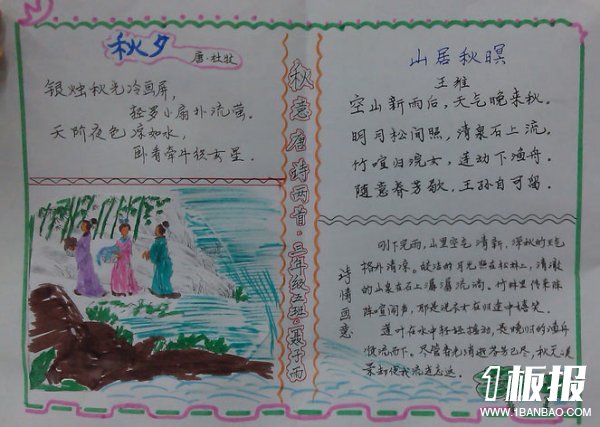 秋夕
唐·杜牧
银烛秋光冷画屏,
轻罗小扇扑流萤。
天阶夜色凉如水,
卧看牵牛织女星。
秋意唐诗两首·三年级二班·聂子雨
山居秋暝
王维
空山新雨后,天气晚来秋。
明月松间照,清泉石上流。
竹喧归浣女,莲动下渔舟。
随意春芳歇,王孙自可留。
诗情画意
刚下完雨,山里空气清新,深秋的天色
格外清凉。皎洁的月光照在松林上,清澈
的山泉在石上潺潺流淌。竹林里传来阵
阵喧闹声,那是洗衣女在归途中嬉笑。
莲叶在水中轻轻摇动,是晚归的渔舟
顺流而下。尽管春光清逝芳芳已尽,秋天
1板报
WWW.1BANBAO.COM